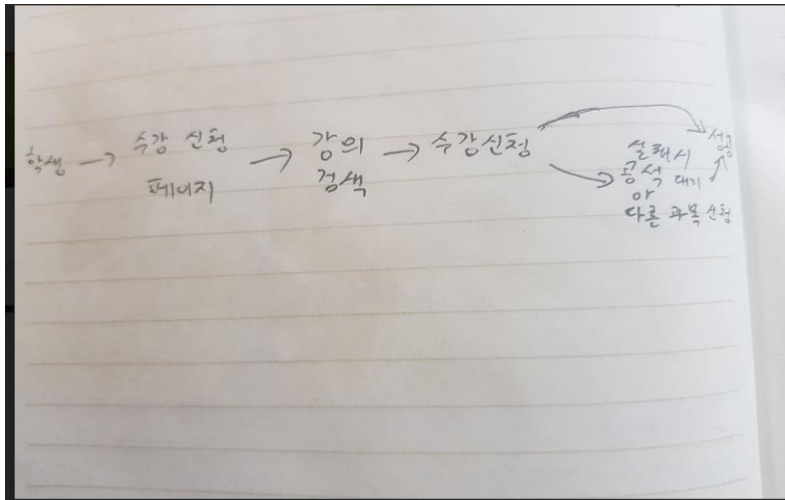 학생 → 수강 신청 페이지 → 강의 검색 → 수강신청 → 성공
실패시
공석 대기
or
다른 과목 신청